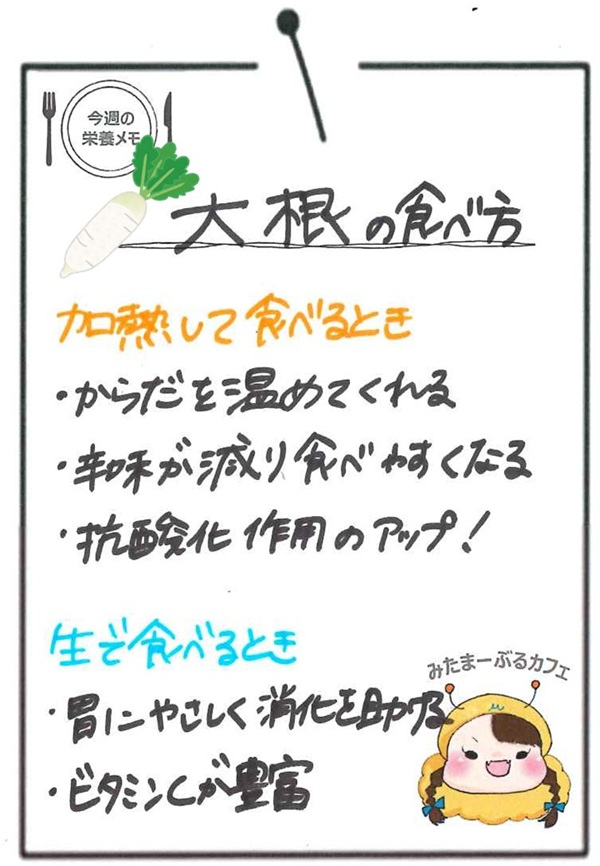 今週の
栄養メモ
大根の食べ方
加熱して食べるとき
・からだを温めてくれる
・辛味が減り食べやすくなる
・抗酸化作用のアップ!
生で食べるとき
・胃にやさしく消化を助ける
・ビタミンCが豊富
みたまーぶるカフェ